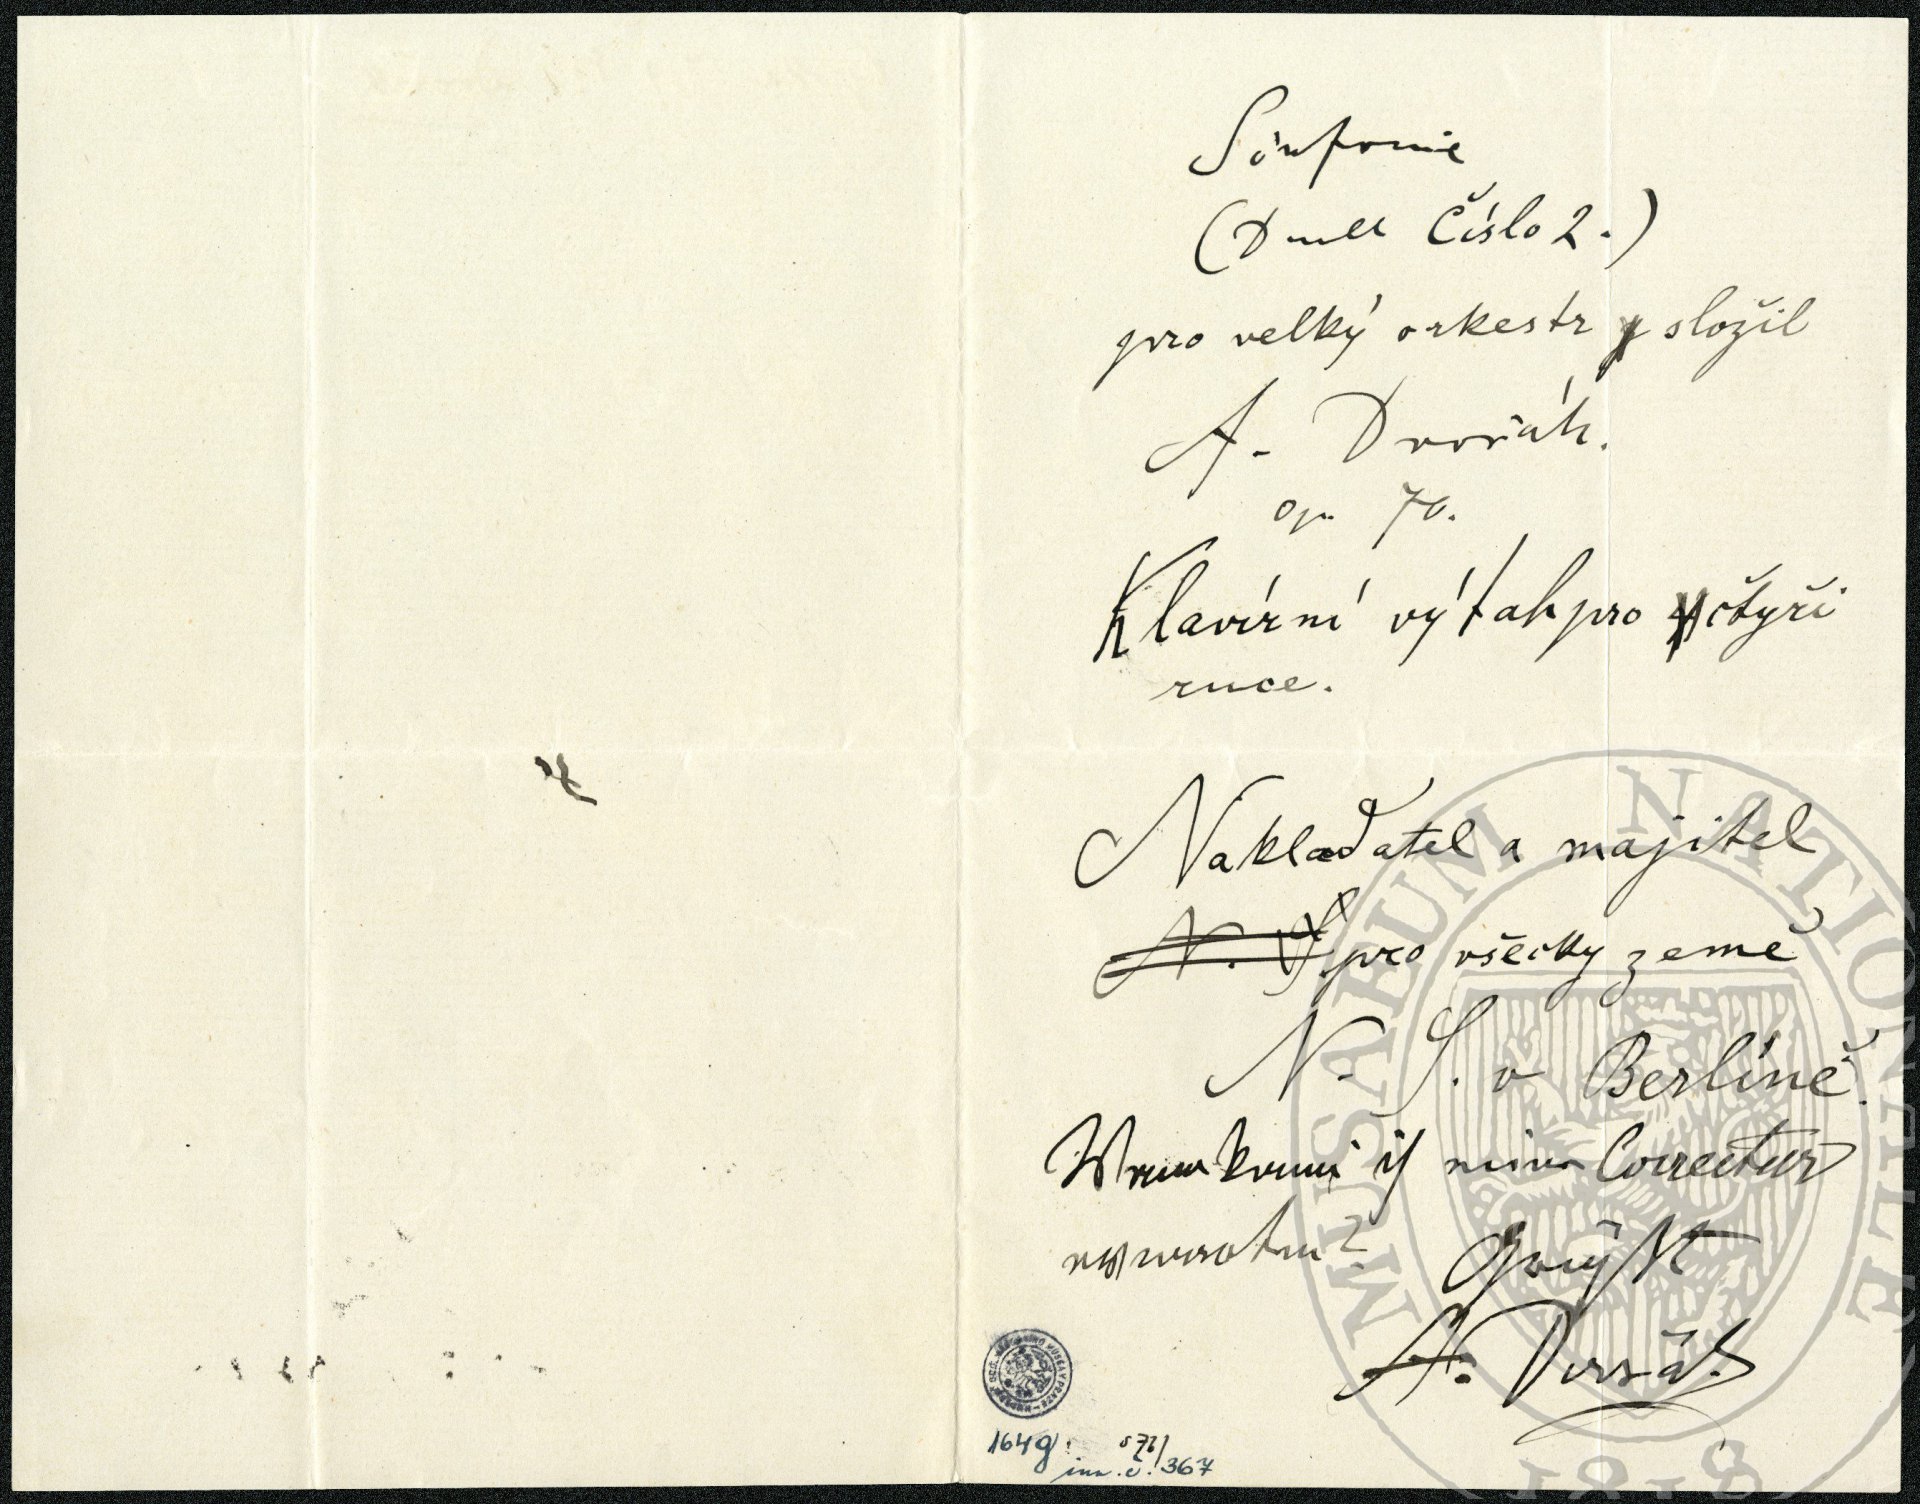 Sinfonie
(D moll Číslo 2.)
pro velký orkestr složil
A. Dvořák.
op. 70.
Klavírní výtah pro čtyři
ruce.
Nakladatel a majitel
N. S. pro všecky země
N. S. v Berlíně.
Wann komm ich Correctur
A. Dvořák
1649.
inv. č. 367
MUSAEUM NATIONALE
1818